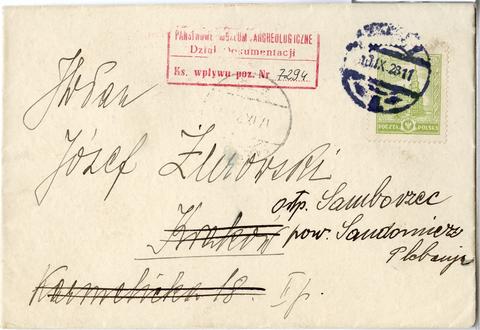 PAŃSTWOWE MUZEUM ARCHEOLOGICZNE
Dział Dokumentacji
Ks. wpływu poz. Nr 7294
IX.28 11
POCZTA POLSKA
JWPan
Józef Żurowski
Kraków
Karmelicka 18. II p.
stp. Samborzec
pow. Sandomierz
Plebanja